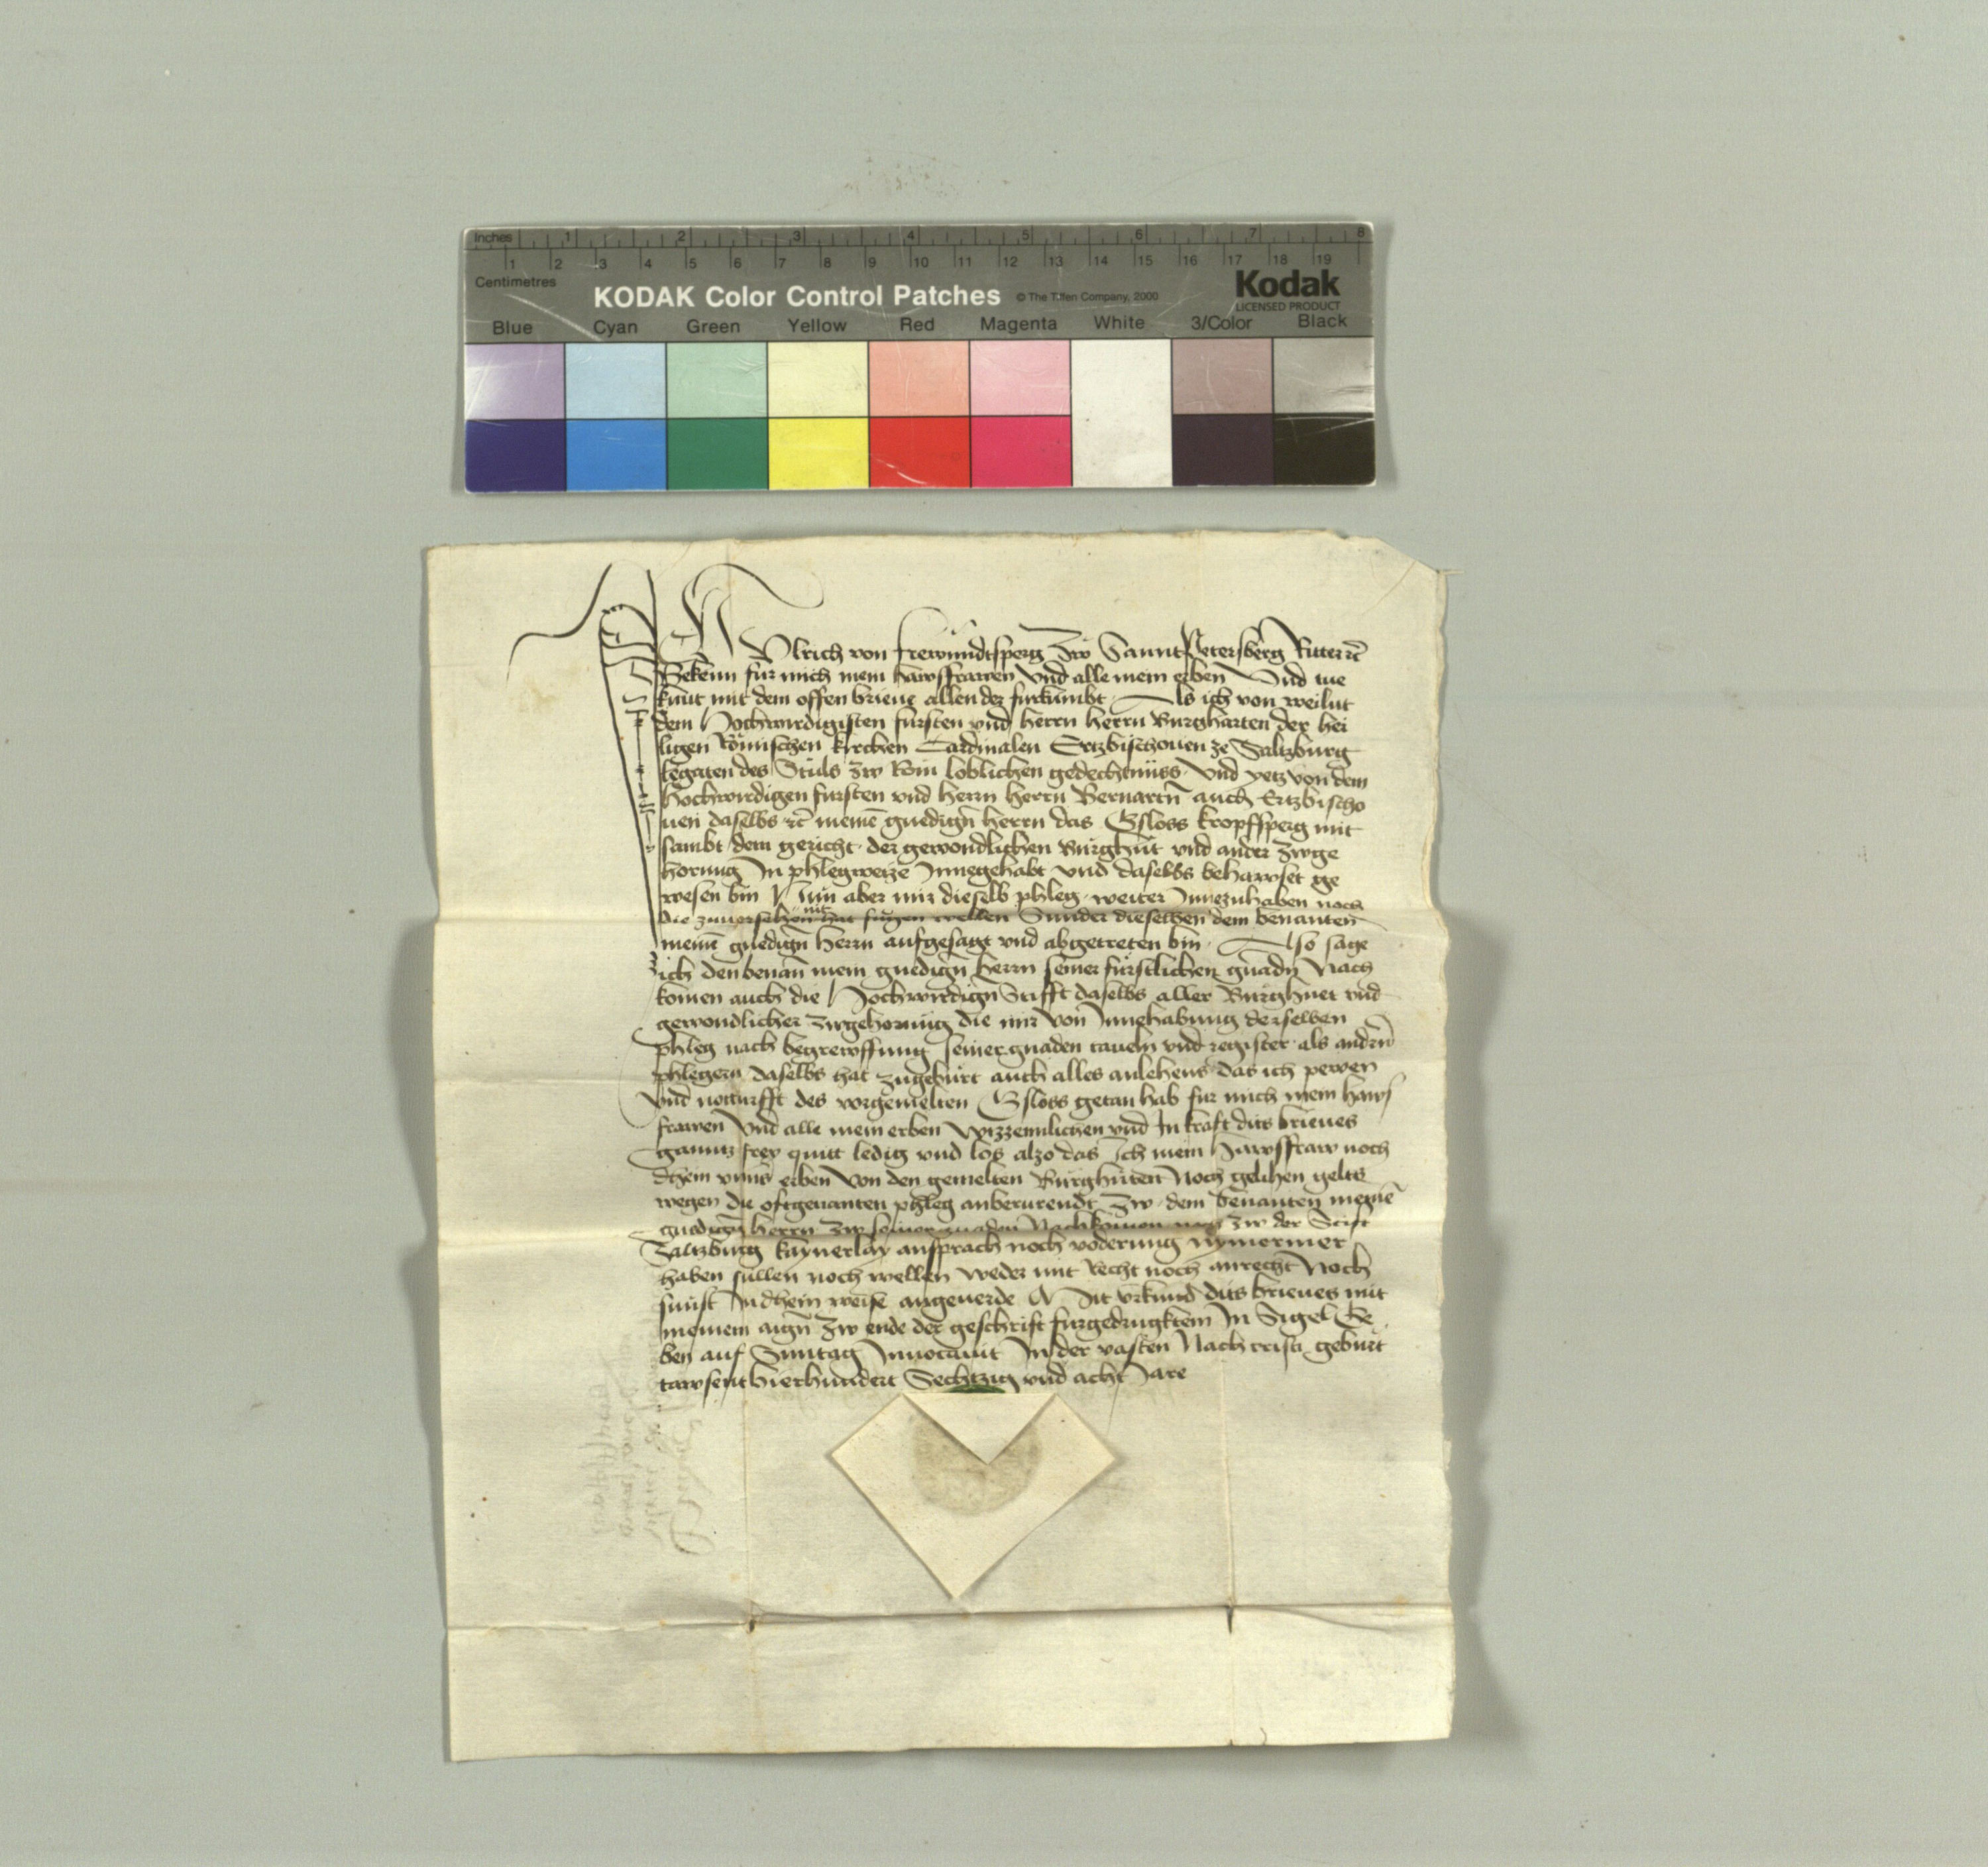 Inches 1 2 3 4 5 6 7 8
1 2 3 4 5 6 7 8 9 10 11 12 13 14 15 16 17 18 19
Centimetres
KODAK Color Control Patches © The Tiffen Company, 2000 Kodak
LICENSED PRODUCT
Blue Cyan Green Yellow Red Magenta White 3/Color Black
Ich Vlrich von frewundtsperg Zw Sannt Petersberg Ritter rc
Bekenn fur mich mein hawsffrawen Vnd alle mein erben Vnd tue
kunt mit dem offen brieue allen der furkumbt Als ich von weilnt
dem Hochwirdigisten fursten vnd herrn herrn Burgharten der hei
ligen Römischen kirchen Cardinalen Ertzbischouen ze Saltzburg
legaten des Stuls zw Rom loblichen gedechtnüss Vnd yetz von dem
hochwirdigen fursten vnd herrn herrn Bernartn auch Ertzbischo
uen daselbs rc meinē gnedign herrn das Gsloss kropffsperg mit
sambt dem gericht der gewondlichen Burghut vnd ander zwge
horung In phlegweize Innegehabt Vnd daselbs behawset ge
wesen bin Nun aber mir dieselb phleg weiter Innezuhaben noch
die zuuersehen nit hat fugen wellen Sunder dieselben dem benanten
meinē gnedign herrn aufgesagt vnd abgetreten bin Also sage
ich den benan mein gnedign herrn seiner furstlichen gnadn Nach
komen auch die Hochwirdign Stifft daselbs aller Burghuet vnd
gewondlicher zwgehorung die mir von Innehabung derselben
phleg nach begreyffung seiner gnaden camern vnd register als andrn
phlegern daselbs hat zugeburt auch alles anlehens das ich pewen
Vnd notturfft des vorgemelten Gsloss getan hab fur mich mein haws
frawen Vnd alle mein erben Wizzenlichen vnd In kraft dits brieues
ganntz frey quitt ledig vnd los alzo das Ich mein Hawsffraw noch
dhein vnns erben Von den gemelten Burghuten Noch gelihen gelts
wegen die oftgenanten phleg anberurendt Zw dem benanten meinē
gnedign herrn Zw seiner gnaden Nachkomen noch zw der Stift
Saltzburg kaynerlay ansprach noch voderung nymermer
haben sullen noch wellen weder mit Recht noch anrecht Noch
sunst In dhein weise angeuerde Mit vrkund dits brieues mit
meinem aign Zw ende der geschrift furgedrugktem In Sigel Ge
ben auf Sunntag Inuocauit In der vasten Nach crista geburt
tawsent vierhundert Sechtzig vnd acht Jare